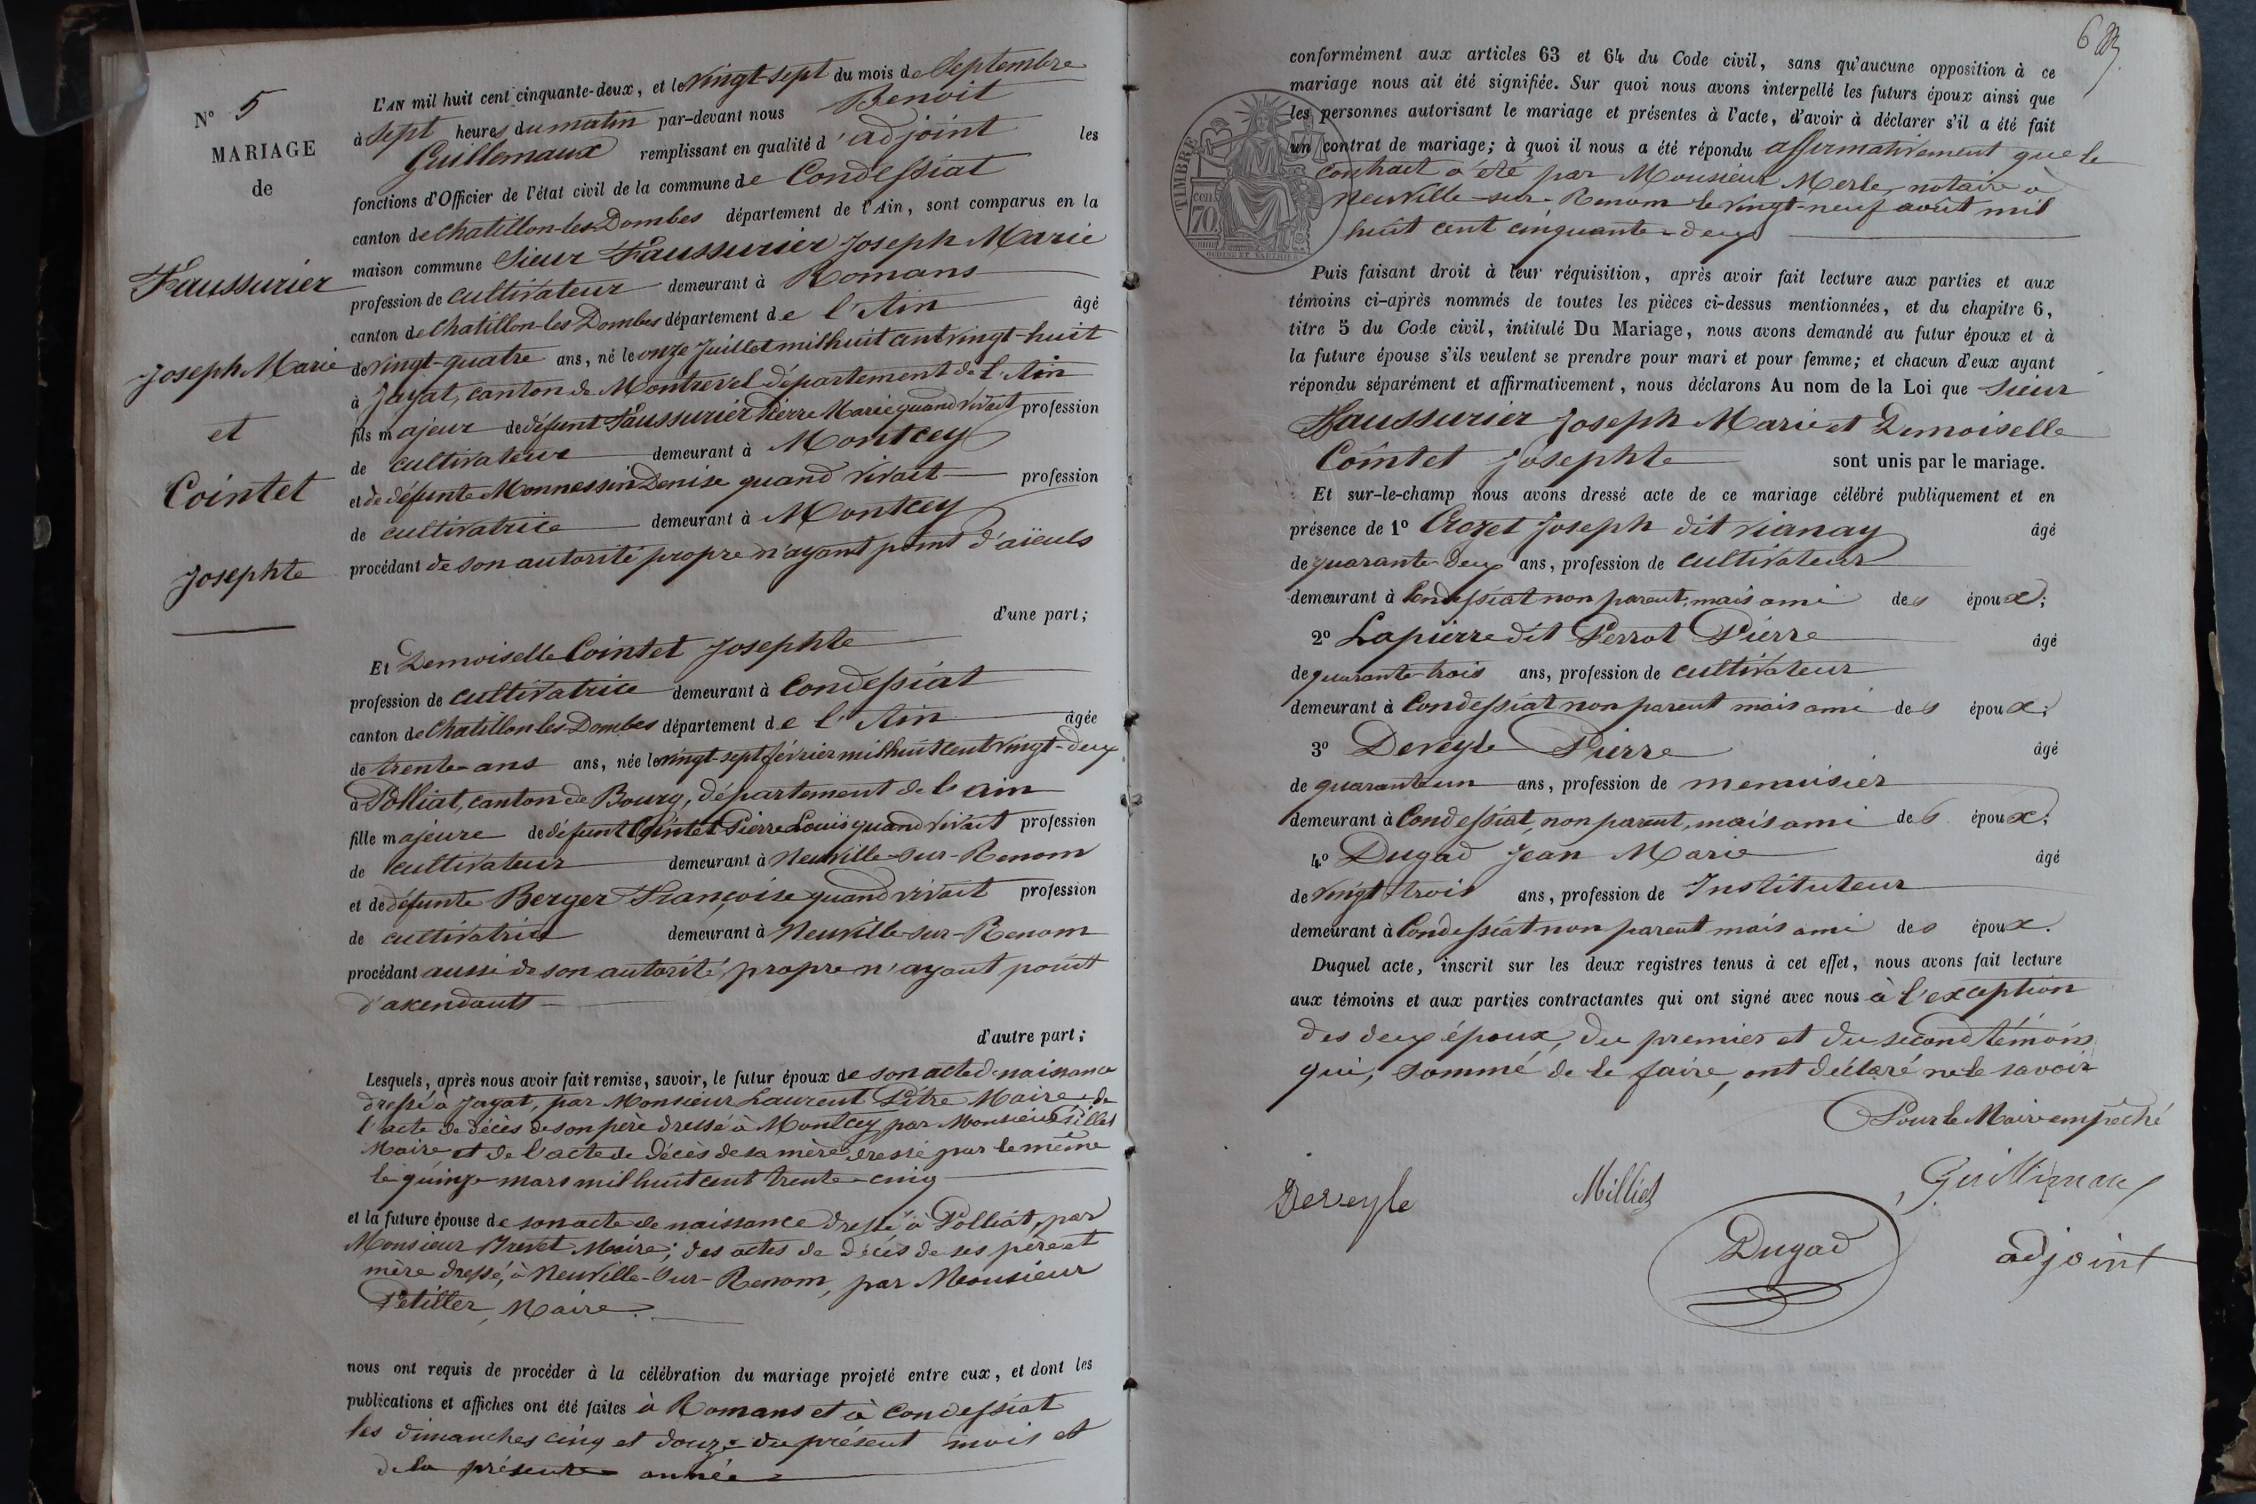 N° 5
MARIAGE
de
Faussurier
Joseph Marie
et
Cointet
Josephte
L'AN mil huit cent cinquante-deux, et le vingt-sept du mois de Septembre
à sept heures du matin par-devant nous Benoit
Guillemaux remplissant en qualité d'adjoint les
fonctions d'Officier de l'état civil de la commune de Condessiat
canton de Chatillon-les-Dombes département de l'Ain, sont comparus en la
maison commune Sieur Faussurier Joseph Marie
profession de cultivateur demeurant à Romans
canton de Chatillon-les-Dombes département de l'Ain âgé
de vingt-quatre ans, né le onze Juillet mil huit cent vingt-huit
à Jayat, canton de Montrevel département de l'Ain
fils majeur de défunt Faussurier Pierre Marie quand vivait profession
de cultivateur demeurant à Montcey
et de défunte Monnessin Denise quand vivait profession
de cultivatrice demeurant à Montcey
procédant de son autorité propre n'ayant point d'aïeuls
d'une part;
Et Demoiselle Cointet Josephte
profession de cultivatrice demeurant à Condessiat
canton de Chatillon-les-Dombes département de l'Ain âgée
de trente ans ans, née le vingt-sept février mil huit cent vingt-deux
à Polliat, canton de Bourg, département de l'ain
fille majeure de défunt Cointet Pierre Louis quand vivait profession
de cultivateur demeurant à Neuville-sur-Renom
et de défunte Berger Françoise quand vivait profession
de cultivatrice demeurant à Neuville-sur-Renom
procédant aussi de son autorité propre n'ayant point
d'ascendants
d'autre part;
Lesquels, après nous avoir fait remise, savoir, le futur époux de son acte de naissance
dressé à Jayat, par Monsieur Laurent Pitre Maire, de
l'acte de décès de son père dressé à Montcey par Monsieur
Maire et de l'acte de décès de sa mère dressé par le même
le quinze mars mil huit cent trente-cinq
et la future épouse de son acte de naissance dressé à Polliat, par
Monsieur Maire; des actes de décès de ses père et
mère dressé, à Neuville-sur-Renom, par Monsieur
Petiller, Maire.
nous ont requis de procéder à la célébration du mariage projeté entre eux, et dont les
publications et affiches ont été faites à Romans et à Condessiat
les dimanches cinq et douze du présent mois et
de la présente année
6
conformément aux articles 63 et 64 du Code civil, sans qu'aucune opposition à ce
mariage nous ait été signifiée. Sur quoi nous avons interpellé les futurs époux ainsi que
les personnes autorisant le mariage et présentes à l'acte, d'avoir à déclarer s'il a été fait
un contrat de mariage; à quoi il nous a été répondu affirmativement que le
contrat a été par Monsieur Merle, notaire à
Neuville-sur-Renom le vingt-neuf août mil
huit cent cinquante-deux
TIMBRE
cen.
70.
Puis faisant droit à leur réquisition, après avoir fait lecture aux parties et aux
témoins ci-après nommés de toutes les pièces ci-dessus mentionnées, et du chapitre 6,
titre 5 du Code civil, intitulé Du Mariage, nous avons demandé au futur époux et à
la future épouse s'ils veulent se prendre pour mari et pour femme; et chacun d'eux ayant
répondu séparément et affirmativement, nous déclarons Au nom de la Loi que Sieur
Faussurier Joseph Marie et Demoiselle
Cointet Josephte sont unis par le mariage.
Et sur-le-champ nous avons dressé acte de ce mariage célébré publiquement et en
présence de 1° Crozet Joseph dit Vianay âgé
de quarante-deux ans, profession de cultivateur
demeurant à Condessiat non parent, mais ami des époux;
2° Lapierre dit Perrot Pierre âgé
de quarante-trois ans, profession de cultivateur
demeurant à Condessiat non parent mais ami des époux;
3° Deveyle Pierre âgé
de quarante un ans, profession de menuisier
demeurant à Condessiat, non parent, mais ami des époux;
4° Dugad Jean Marie âgé
de vingt trois ans, profession de Instituteur
demeurant à Condessiat non parent mais ami des époux.
Duquel acte, inscrit sur les deux registres tenus à cet effet, nous avons fait lecture
aux témoins et aux parties contractantes qui ont signé avec nous à l'exception
des deux époux, du premier et du second témoins
qui, sommé de le faire, ont déclaré ne le savoir
Pour le Maire empêché
Deveyle Milliet
Dugad adjoint